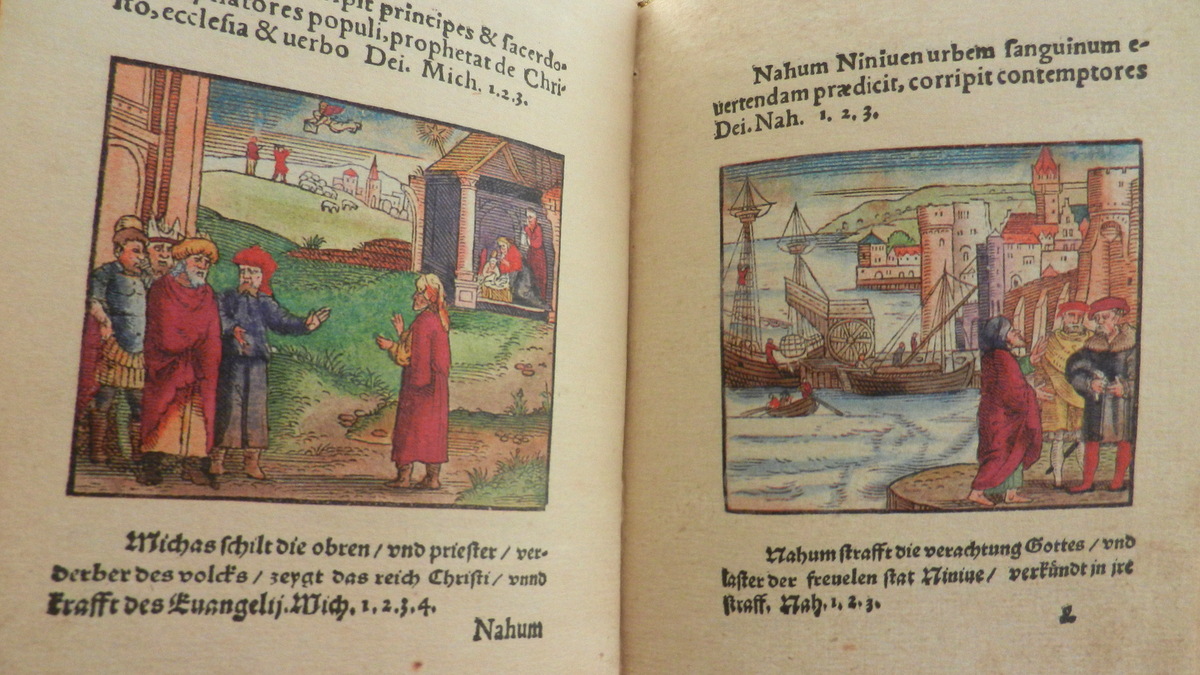 pit principes & sacerdo-
natores populi, prophetat de Chri-
sto, ecclesia & uerbo Dei. Mich. 1.2.3.
Michas schilt die obren / vnd priester / ver-
derber des volcks / zeygt das reich Christi / vnnd
krafft des Euangelij. Mich. 1.2.3.4.
Nahum
Nahum Niniuen urbem sanguinum e-
uertendam prædicit, corripit contemptores
Dei. Nah. 1. 2. 3.
Nahum strafft die verachtung Gottes / vnd
laster der freuelen stat Niniue / verkündt in jre
straff. Nah. 1. 2. 3.